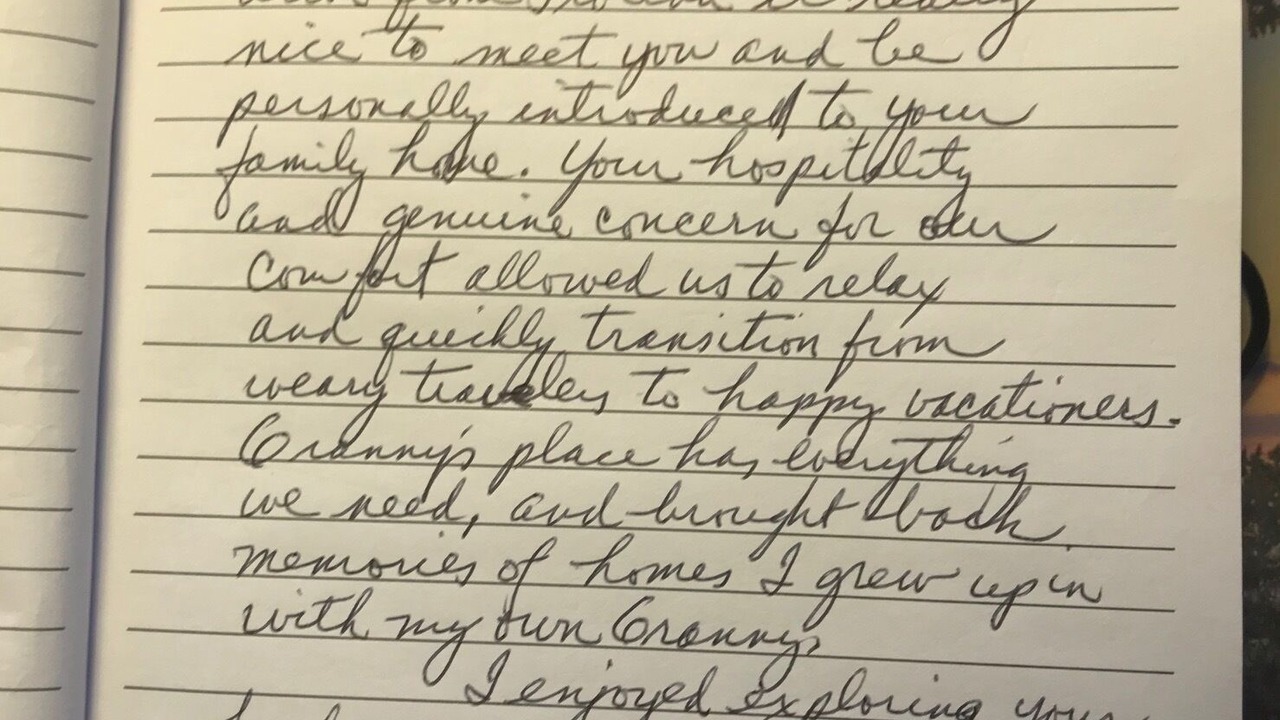 nice to meet you and be
personally introduced to your
family home. Your hospitality
and genuine concern for our
comfort allowed us to relax
and quickly transition from
weary travelers to happy vacationers.
Granny's place has everything
we need, and brought back
memories of homes I grew up in
with my own Grannys
I enjoyed exploring your